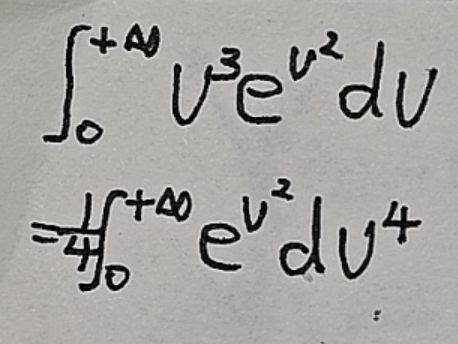 ∫₀^{+∞} v³e^{v²}dv
=¼∫₀^{+∞} e^{v²}dv⁴